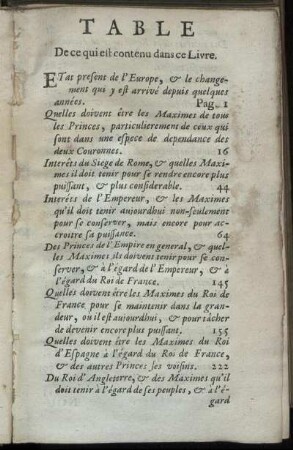 TABLE
De ce qui est contenu dans ce Livre.
ETat present de l'Europe, & le change-
ment qui y est arrivé depuis quelques
années. Pag. 1
Quelles doivent être les Maximes de tous
les Princes, particulierement de ceux qui
sont dans une espece de dependance des
deux Couronnes. 16
Interêts du Siege de Rome, & quelles Maxi-
mes il doit tenir pour se rendre encore plus
puissant, & plus considerable. 44
Interêts de l'Empereur, & les Maximes
qu'il doit tenir aujourdhui non-seulement
pour se conserver, mais encore pour ac-
croitre sa puissance. 64
Des Princes de l'Empire en general, & quel-
les Maximes ils doivent tenir pour se con-
server, & à l'égard de l'Empereur, & à
l'égard du Roi de France. 145
Quelles doivent être les Maximes du Roi de
France pour se maintenir dans la gran-
deur, ou il est aujourdhui, & pour tâcher
de devenir encore plus puissant. 155
Quelles doivent être les Maximes du Roi
d'Espagne à l'égard du Roi de France,
& des autres Princes ses voisins. 222
Du Roi d'Angleterre, & des Maximes qu'il
doit tenir à l'égard de ses peuples, & à l'é-
gard